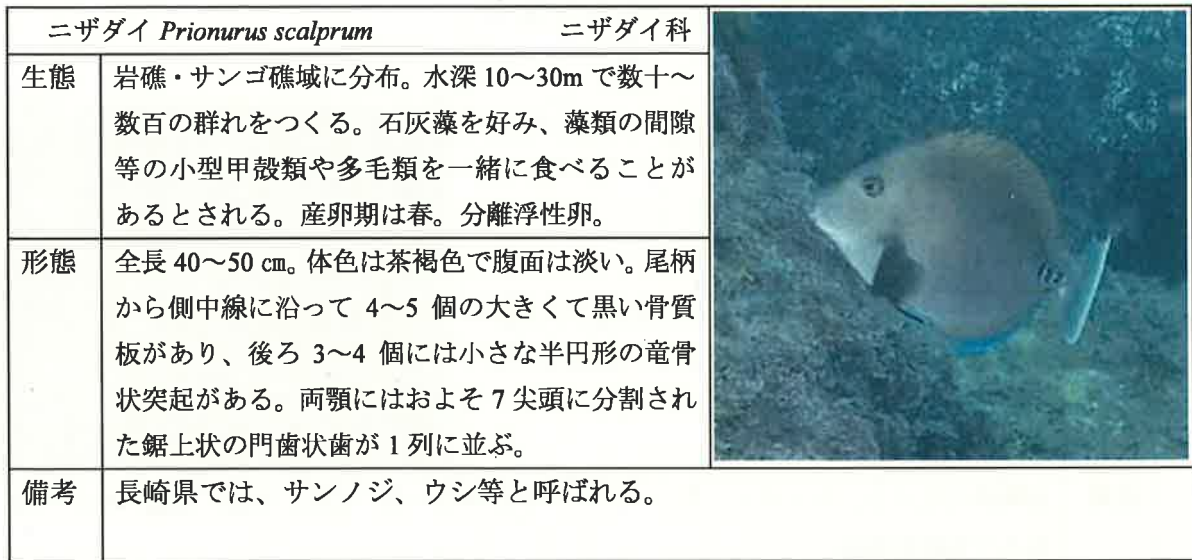 ニザダイ Prionurus scalprum ニザダイ科
生態
岩礁・サンゴ礁域に分布。水深 10～30m で数十～
数百の群れをつくる。石灰藻を好み、藻類の間隙
等の小型甲殻類や多毛類を一緒に食べることが
あるとされる。産卵期は春。分離浮性卵。
形態
全長 40～50 ㎝。体色は茶褐色で腹面は淡い。尾柄
から側中線に沿って 4～5 個の大きくて黒い骨質
板があり、後ろ 3～4 個には小さな半円形の竜骨
状突起がある。両顎にはおよそ 7 尖頭に分割され
た鋸上状の門歯状歯が 1 列に並ぶ。
備考
長崎県では、サンノジ、ウシ等と呼ばれる。